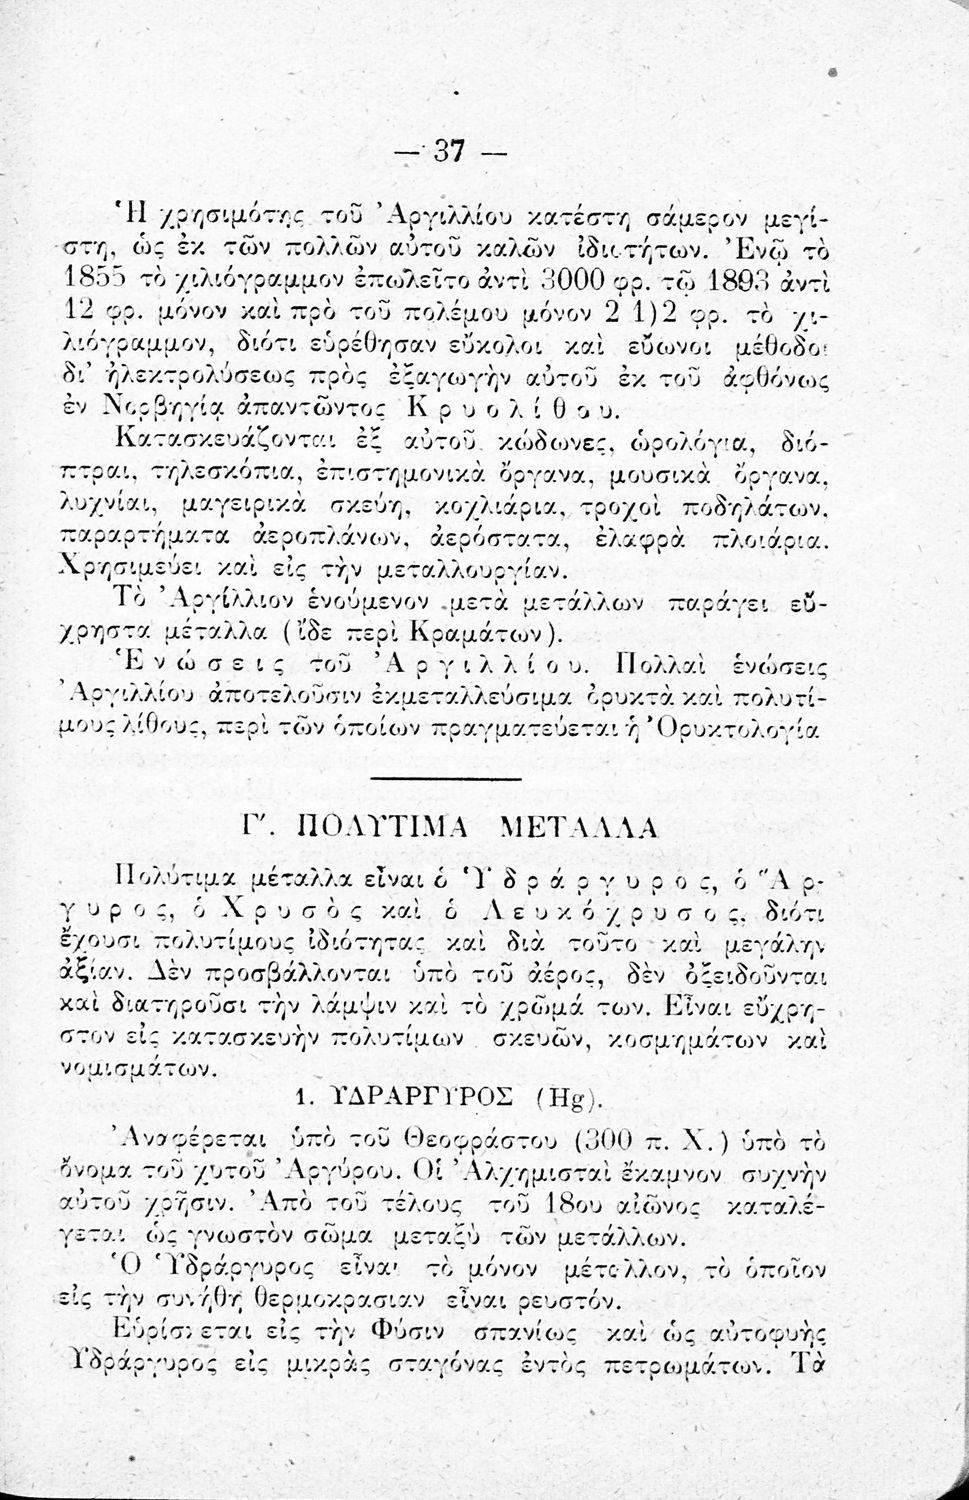 — 37 —
Ἡ χρησιμότης τοῦ Ἀργιλλίου κατέστη σάμερον μεγί-
στη, ὡς ἐκ τῶν πολλῶν αὐτοῦ καλῶν ἰδιοτήτων. Ἐνῷ τὸ
1855 τὸ χιλιόγραμμον ἐπωλεῖτο ἀντὶ 3000 φρ. τῷ 1893 ἀντὶ
12 φρ. μόνον καὶ πρὸ τοῦ πολέμου μόνον 2 1)2 φρ. τὸ χι-
λιόγραμμον, διότι εὑρέθησαν εὔκολοι καὶ εὔωνοι μέθοδοι
δι' ἠλεκτρολύσεως πρὸς ἐξαγωγὴν αὐτοῦ ἐκ τοῦ ἀφθόνως
ἐν Νορβηγίᾳ ἀπαντῶντος Κρυολίθου.
Κατασκευάζονται ἐξ αὐτοῦ κώδωνες, ὡρολόγια, διό-
πτραι, τηλεσκόπια, ἐπιστημονικὰ ὄργανα, μουσικὰ ὄργανα,
λυχνίαι, μαγειρικὰ σκεύη, κοχλιάρια, τροχοὶ ποδηλάτων,
παραρτήματα ἀεροπλάνων, ἀερόστατα, ἐλαφρὰ πλοιάρια.
Χρησιμεύει καὶ εἰς τὴν μεταλλουργίαν.
Τὸ Ἀργίλλιον ἑνούμενον μετὰ μετάλλων παράγει εὔ-
χρηστα μέταλλα (ἴδε περὶ Κραμάτων).
Ἑνώσεις τοῦ Ἀργιλλίου. Πολλαὶ ἑνώσεις
Ἀργιλλίου ἀποτελοῦσιν ἐκμεταλλεύσιμα ὀρυκτὰ καὶ πολυτί-
μους λίθους, περὶ τῶν ὁποίων πραγματεύεται ἡ Ὀρυκτολογία
Γ'. ΠΟΛΥΤΙΜΑ ΜΕΤΑΛΛΑ
Πολύτιμα μέταλλα εἶναι ὁ Ὑδράργυρος, ὁ Ἄρ-
γυρος, ὁ Χρυσὸς καὶ ὁ Λευκόχρυσος, διότι
ἔχουσι πολυτίμους ἰδιότητας καὶ διὰ τοῦτο καὶ μεγάλην
ἀξίαν. Δὲν προσβάλλονται ὑπὸ τοῦ ἀέρος, δὲν ὀξειδοῦνται
καὶ διατηροῦσι τὴν λάμψιν καὶ τὸ χρῶμά των. Εἶναι εὔχρη-
στον εἰς κατασκευὴν πολυτίμων σκευῶν, κοσμημάτων καὶ
νομισμάτων.
1. ΥΔΡΑΡΓΥΡΟΣ (Hg).
Ἀναφέρεται ὑπὸ τοῦ Θεοφράστου (300 π. Χ.) ὑπὸ τὸ
ὄνομα τοῦ χυτοῦ Ἀργύρου. Οἱ Ἀλχημισταὶ ἔκαμνον συχνὴν
αὐτοῦ χρῆσιν. Ἀπὸ τοῦ τέλους τοῦ 18ου αἰῶνος καταλέ-
γεται ὡς γνωστὸν σῶμα μεταξὺ τῶν μετάλλων.
Ὁ Ὑδράργυρος εἶναι τὸ μόνον μέταλλον, τὸ ὁποῖον
εἰς τὴν συνήθη θερμοκρασιαν εἶναι ρευστόν.
Εὑρίσκεται εἰς τὴν Φύσιν σπανίως καὶ ὡς αὐτοφυὴς
Ὑδράργυρος εἰς μικρὰς σταγόνας ἐντὸς πετρωμάτων. Τὰ